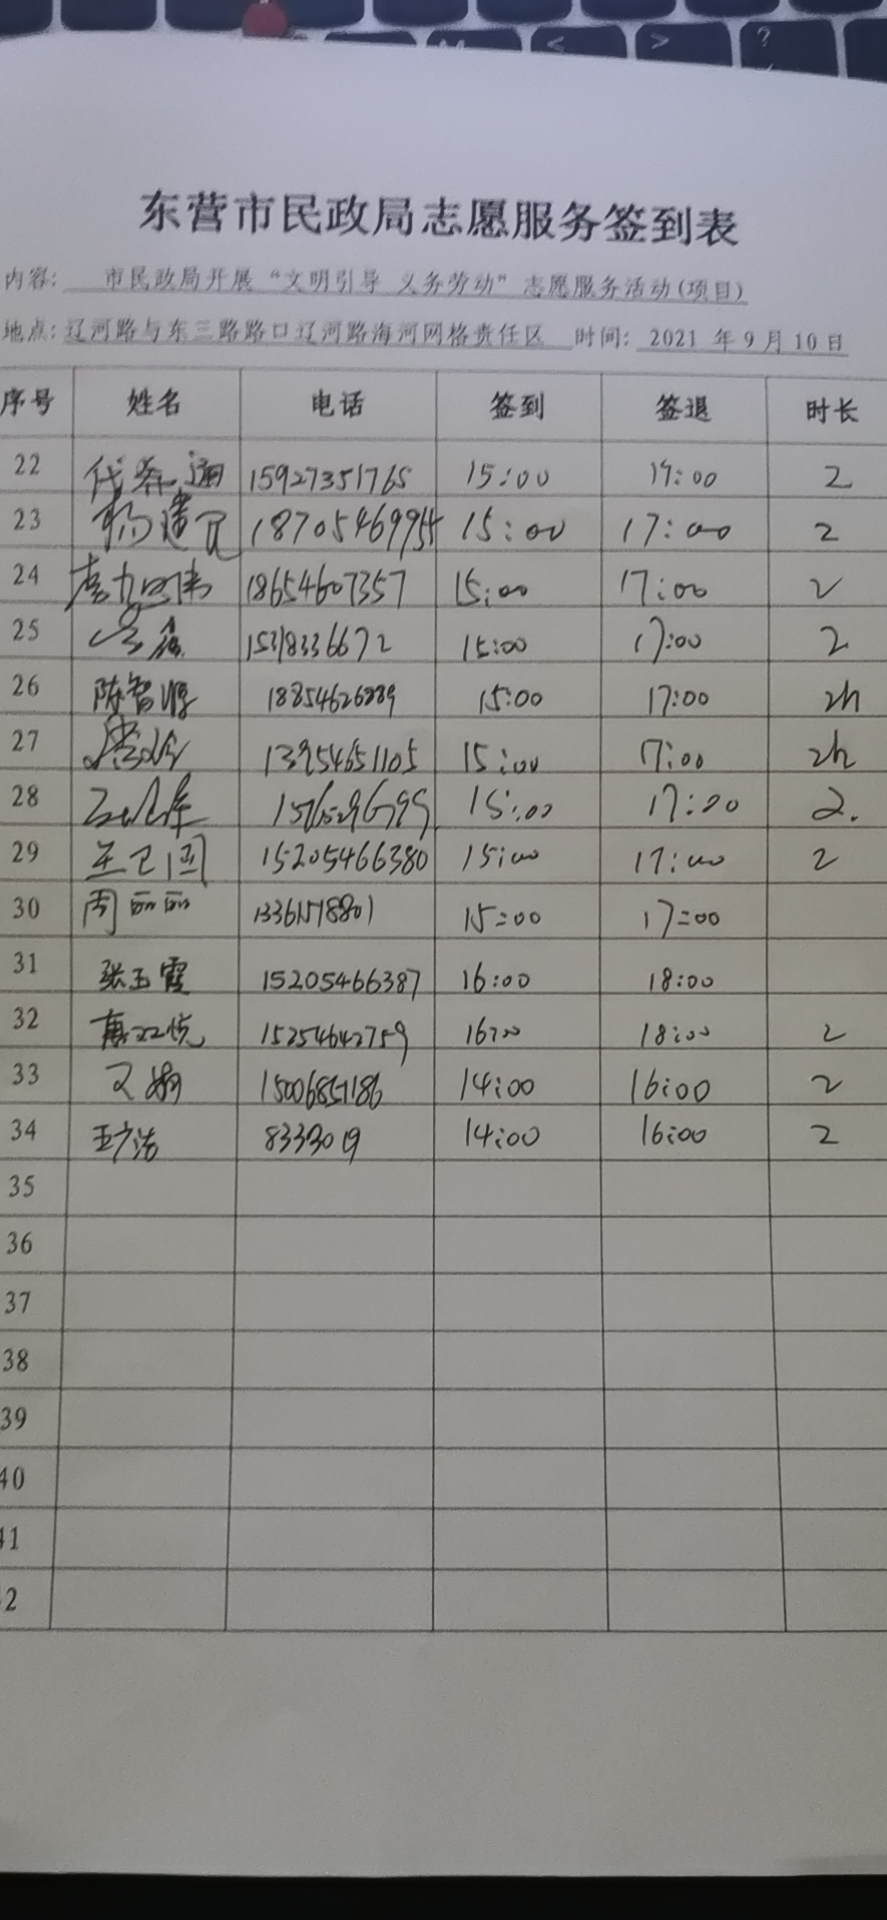 东营市民政局志愿服务签到表
内容: 市民政局开展“文明引导 义务劳动”志愿服务活动(项目)
地点: 辽河路与东三路路口辽河路海河网格责任区 时间: 2021 年 9 月 10 日
序号 姓名 电话 签到 签退 时长
22 15927351765 15:00 17:00 2
23 杨建民 15:00 17:00 2
24 18654607357 15:00 17:00 2
25 15318336672 15:00 17:00 2
26 陈智顺 18854626889 15:00 17:00 2h
27 13954651105 15:00 17:00 2h
28 15:00 17:00 2.
29 王卫国 15205466380 15:00 17:00 2
30 周丽丽 15:00 17:00
31 张玉霞 15205466387 16:00 18:00
32 15254642759 16:00 18:00 2
33 15006851186 14:00 16:00 2
34 14:00 16:00 2
35
36
37
38
39
40
41
2